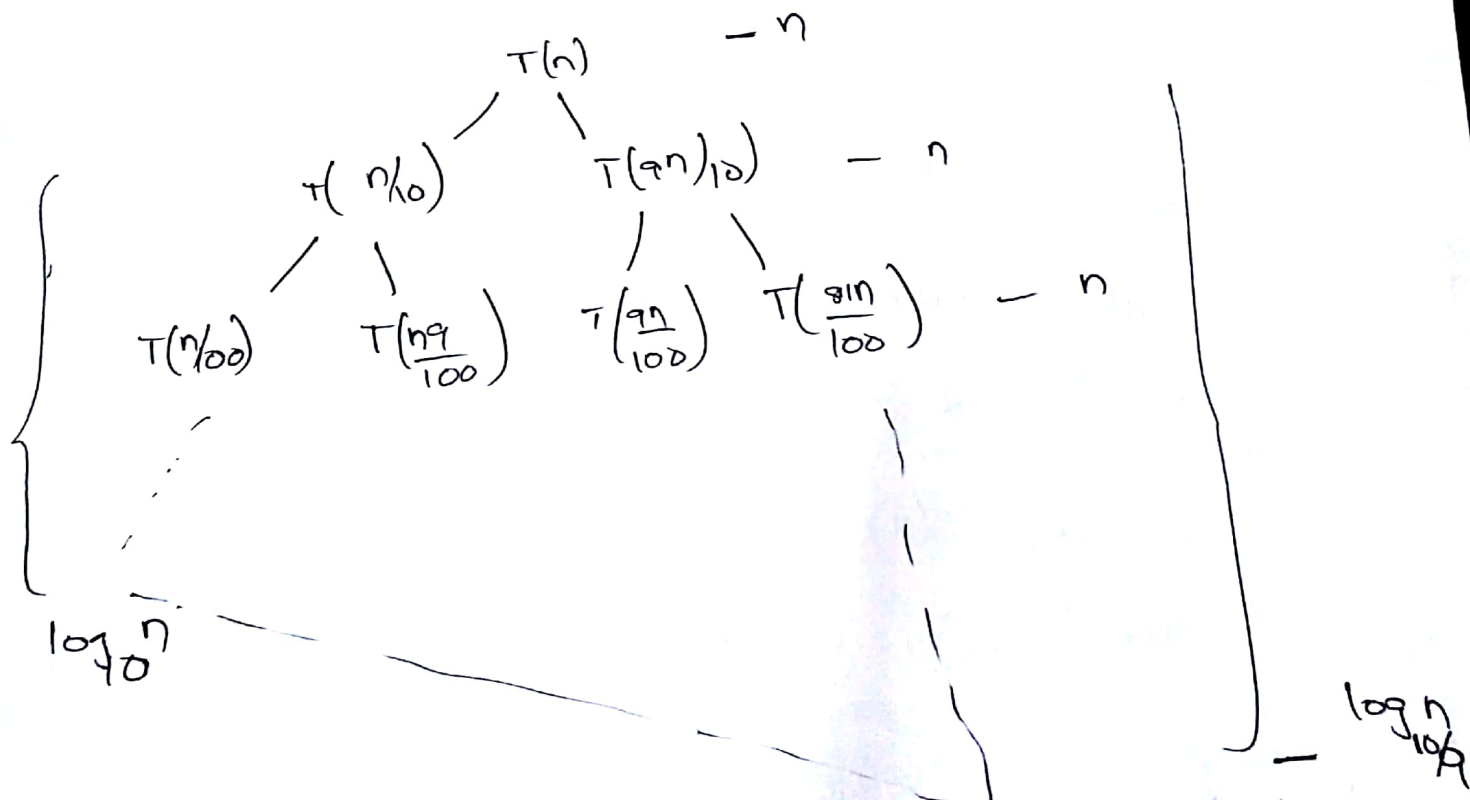 T(n) - n
T(n/10) T(9n/10) - n
T(n/100) T(n9/100) T(9n/100) T(81n/100) - n
log₁₀n
- log n 10/9